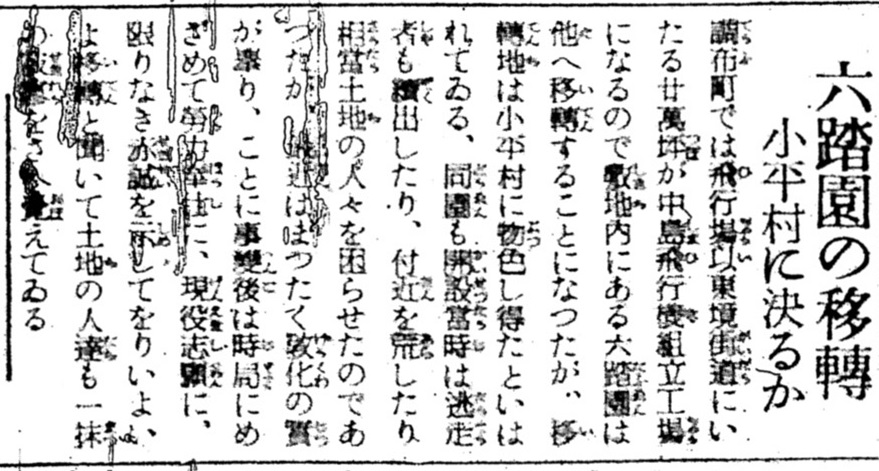 六踏園の移轉
小平村に決るか
調布町では飛行場以東境街道にい
たる廿萬坪が中島飛行機組立工場
になるので敷地内にある六踏園は
他へ移轉することになつたが、移
轉地は小平村に物色し得たといは
れてゐる、同園も開設當時は逃走
者も續出したり、付近を荒したり
相當土地の人々を困らせたのであ
つたが 近はまつたく敎化の實
が擧り、ことに事變後は時局にめ
ざめて勞力奉仕に、現役志願に、
限りなき赤誠を示してをりいよ、
よ移轉と聞いて土地の人達も一抹
の をさへ覺えてゐる